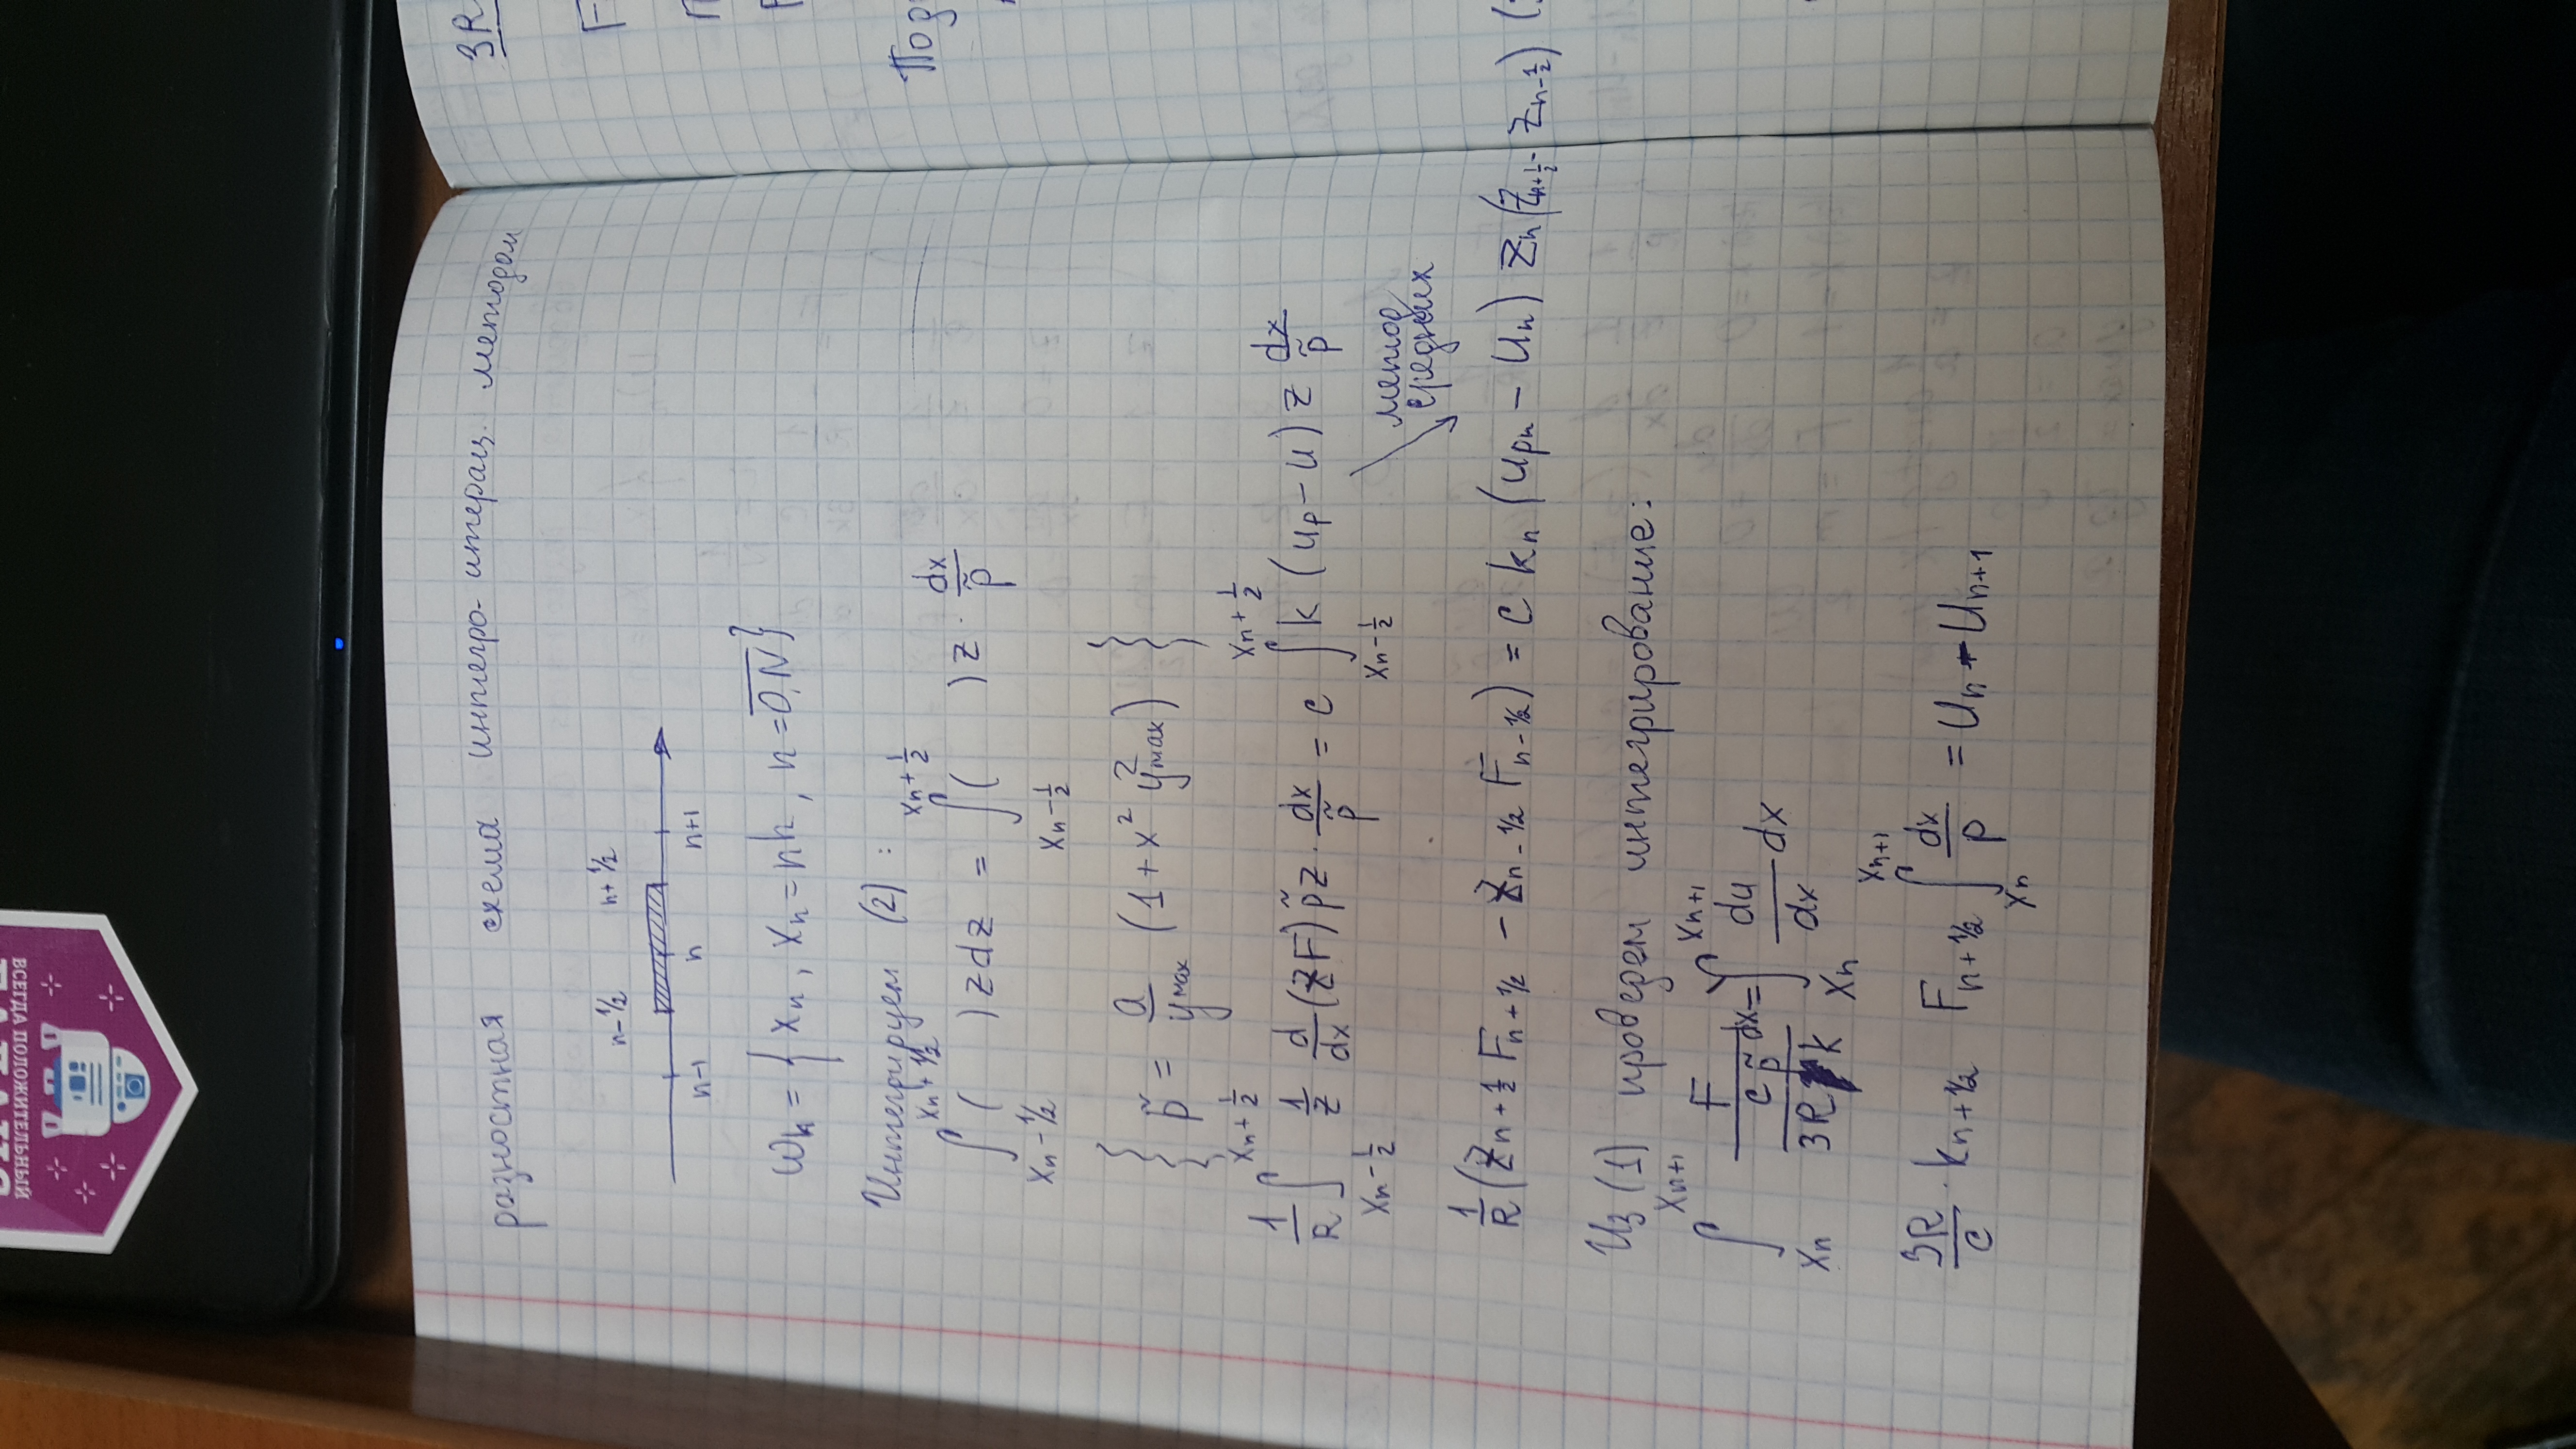 разностная схема интегро-интерац. методом
n-½ n+½
n-1 n n+1
ωh = { xn, xn = nh, n = 0,N̅}
Интегрируем (2):
∫_{xn-½}^{xn+½} ( ) z dz = ∫_{xn-½}^{xn+½} ( ) z · dx/p̃
{ p̃ = a/ymax (1 + x² y²max) }
1/R ∫_{xn-½}^{xn+½} 1/z d/dx (zF) p̃ z · dx/p̃ = c ∫_{xn-½}^{xn+½} k (up - u) z dx/p̃
метод средних
1/R (zn+½ Fn+½ - zn-½ Fn-½) = c kn (upn - un) zn (zn+½ - zn-½)
Из (1) проведем интегрирование:
∫_{xn}^{xn+1} F / (c p̃ / 3R k) dx = ∫_{xn}^{xn+1} du/dx dx
3R/c · kn+½ Fn+½ ∫_{xn}^{xn+1} dx/p = Un - Un+1
3R
F
Под
ВСЕГДА ПОЛОЖИТЕЛЬНЫЙ